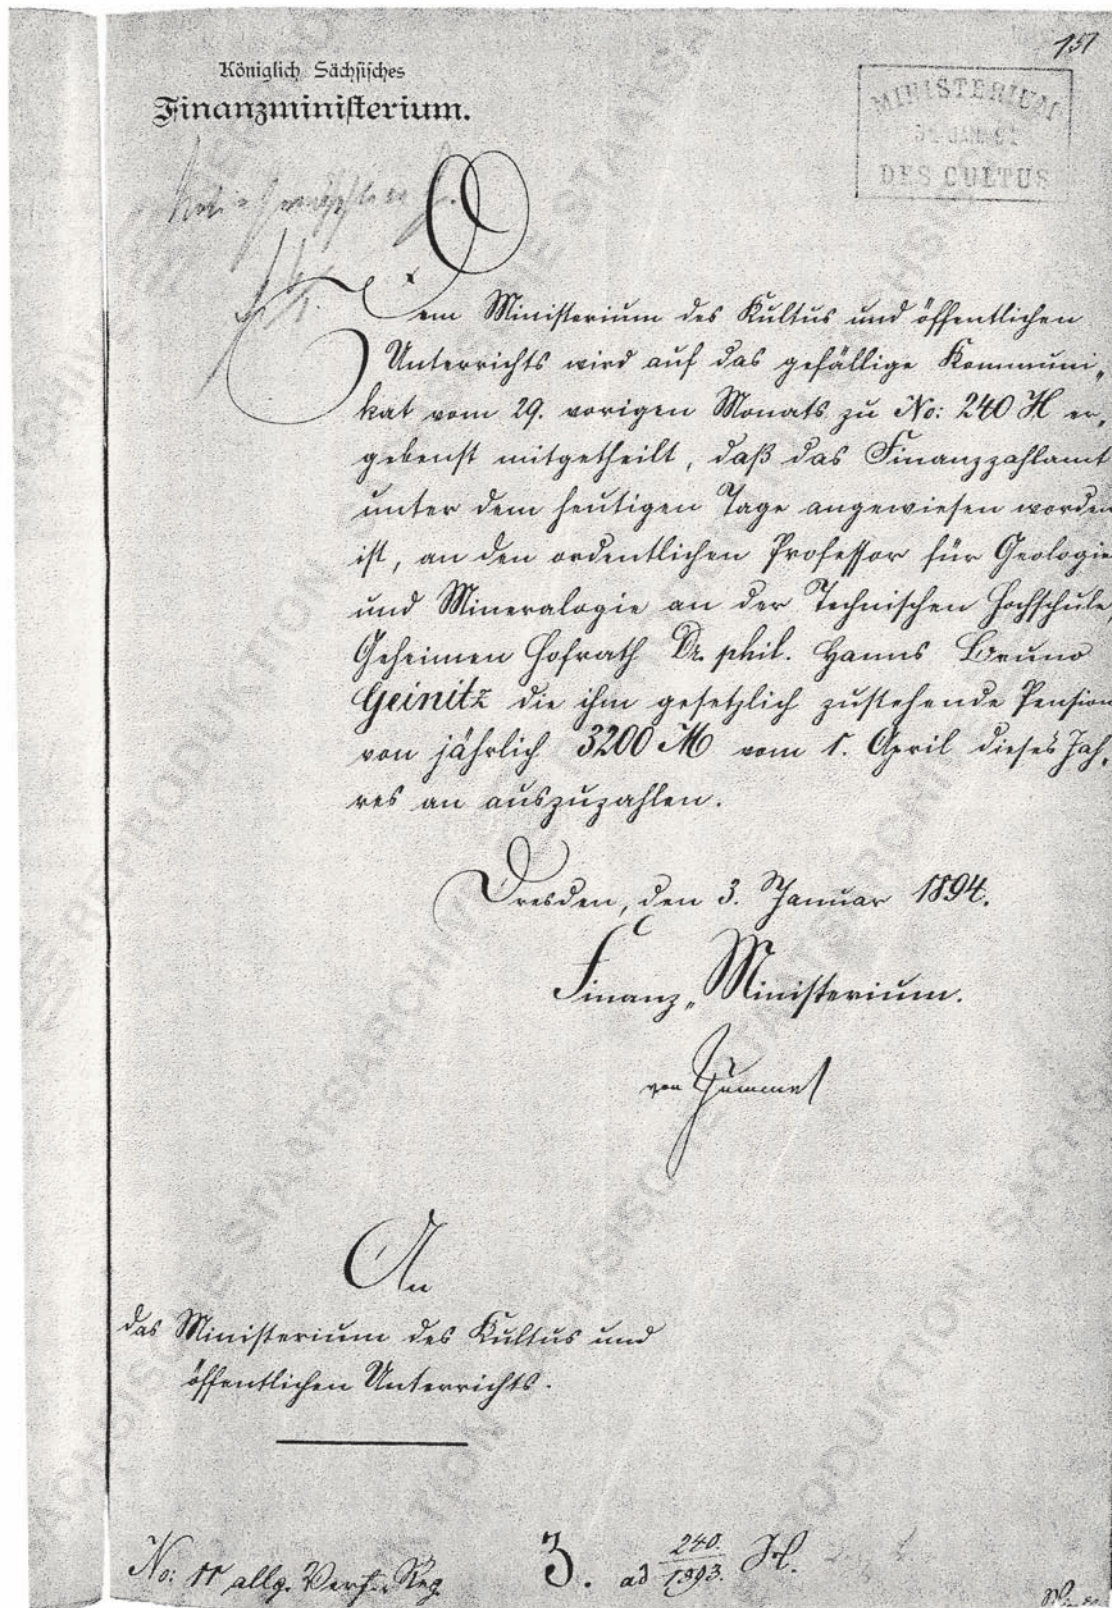 151
Königlich Sächsisches
Finanzministerium.
MINISTERIUM
DES CULTUS
Dem Ministerium des Kultus und öffentlichen
Unterrichts wird auf das gefällige Kommuni-
kat vom 29. vorigen Monats zu No: 240 H er-
gebenst mitgetheilt, daß das Finanzzahlamt
unter dem heutigen Tage angewiesen worden
ist, an den ordentlichen Professor für Geologie
und Mineralogie an der Technischen Hochschule,
Geheimen Hofrath Dr. phil. Hanns Bruno
Geinitz die ihm gesetzlich zustehende Pension
von jährlich 3200 M vom 1. April dieses Jah-
res an auszuzahlen.
Dresden, den 3. Januar 1894.
Finanz-Ministerium.
von
An
das Ministerium des Kultus und
öffentlichen Unterrichts.
No: 11 allg. Verf. Reg.
3. ad 240./1893. H.